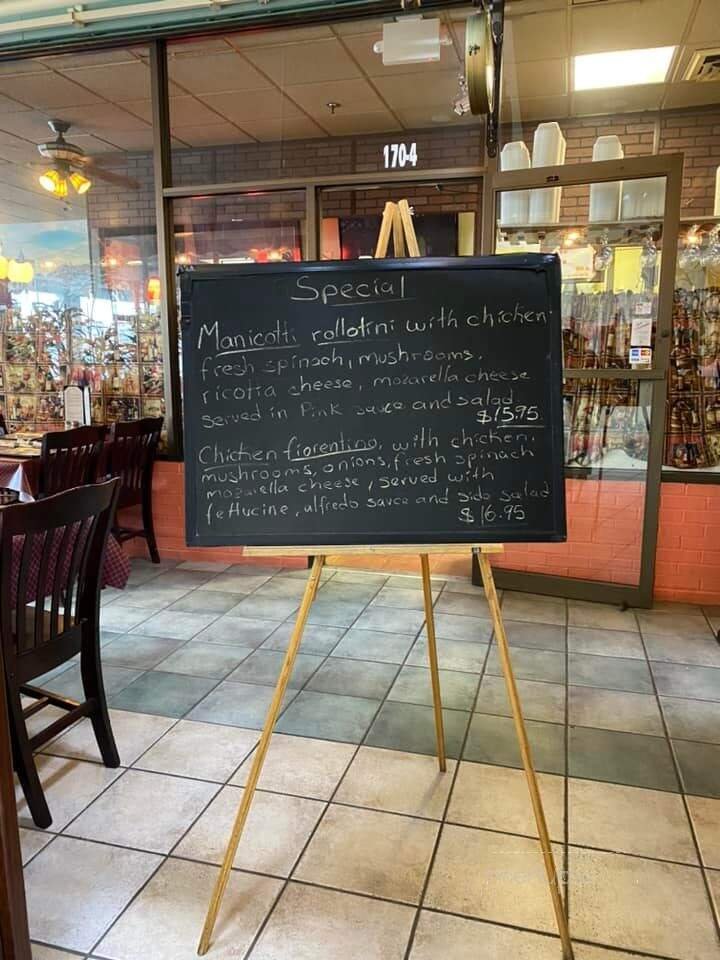 1704
Special
Manicotti rollotini with chicken
fresh spinach, mushrooms,
ricotta cheese, mozarella cheese
served in Pink sauce and salad
$15.95
Chicken fiorentino, with chicken,
mushrooms, onions, fresh spinach
mozarella cheese, served with
fettucine, alfredo sauce and side salad
$16.95